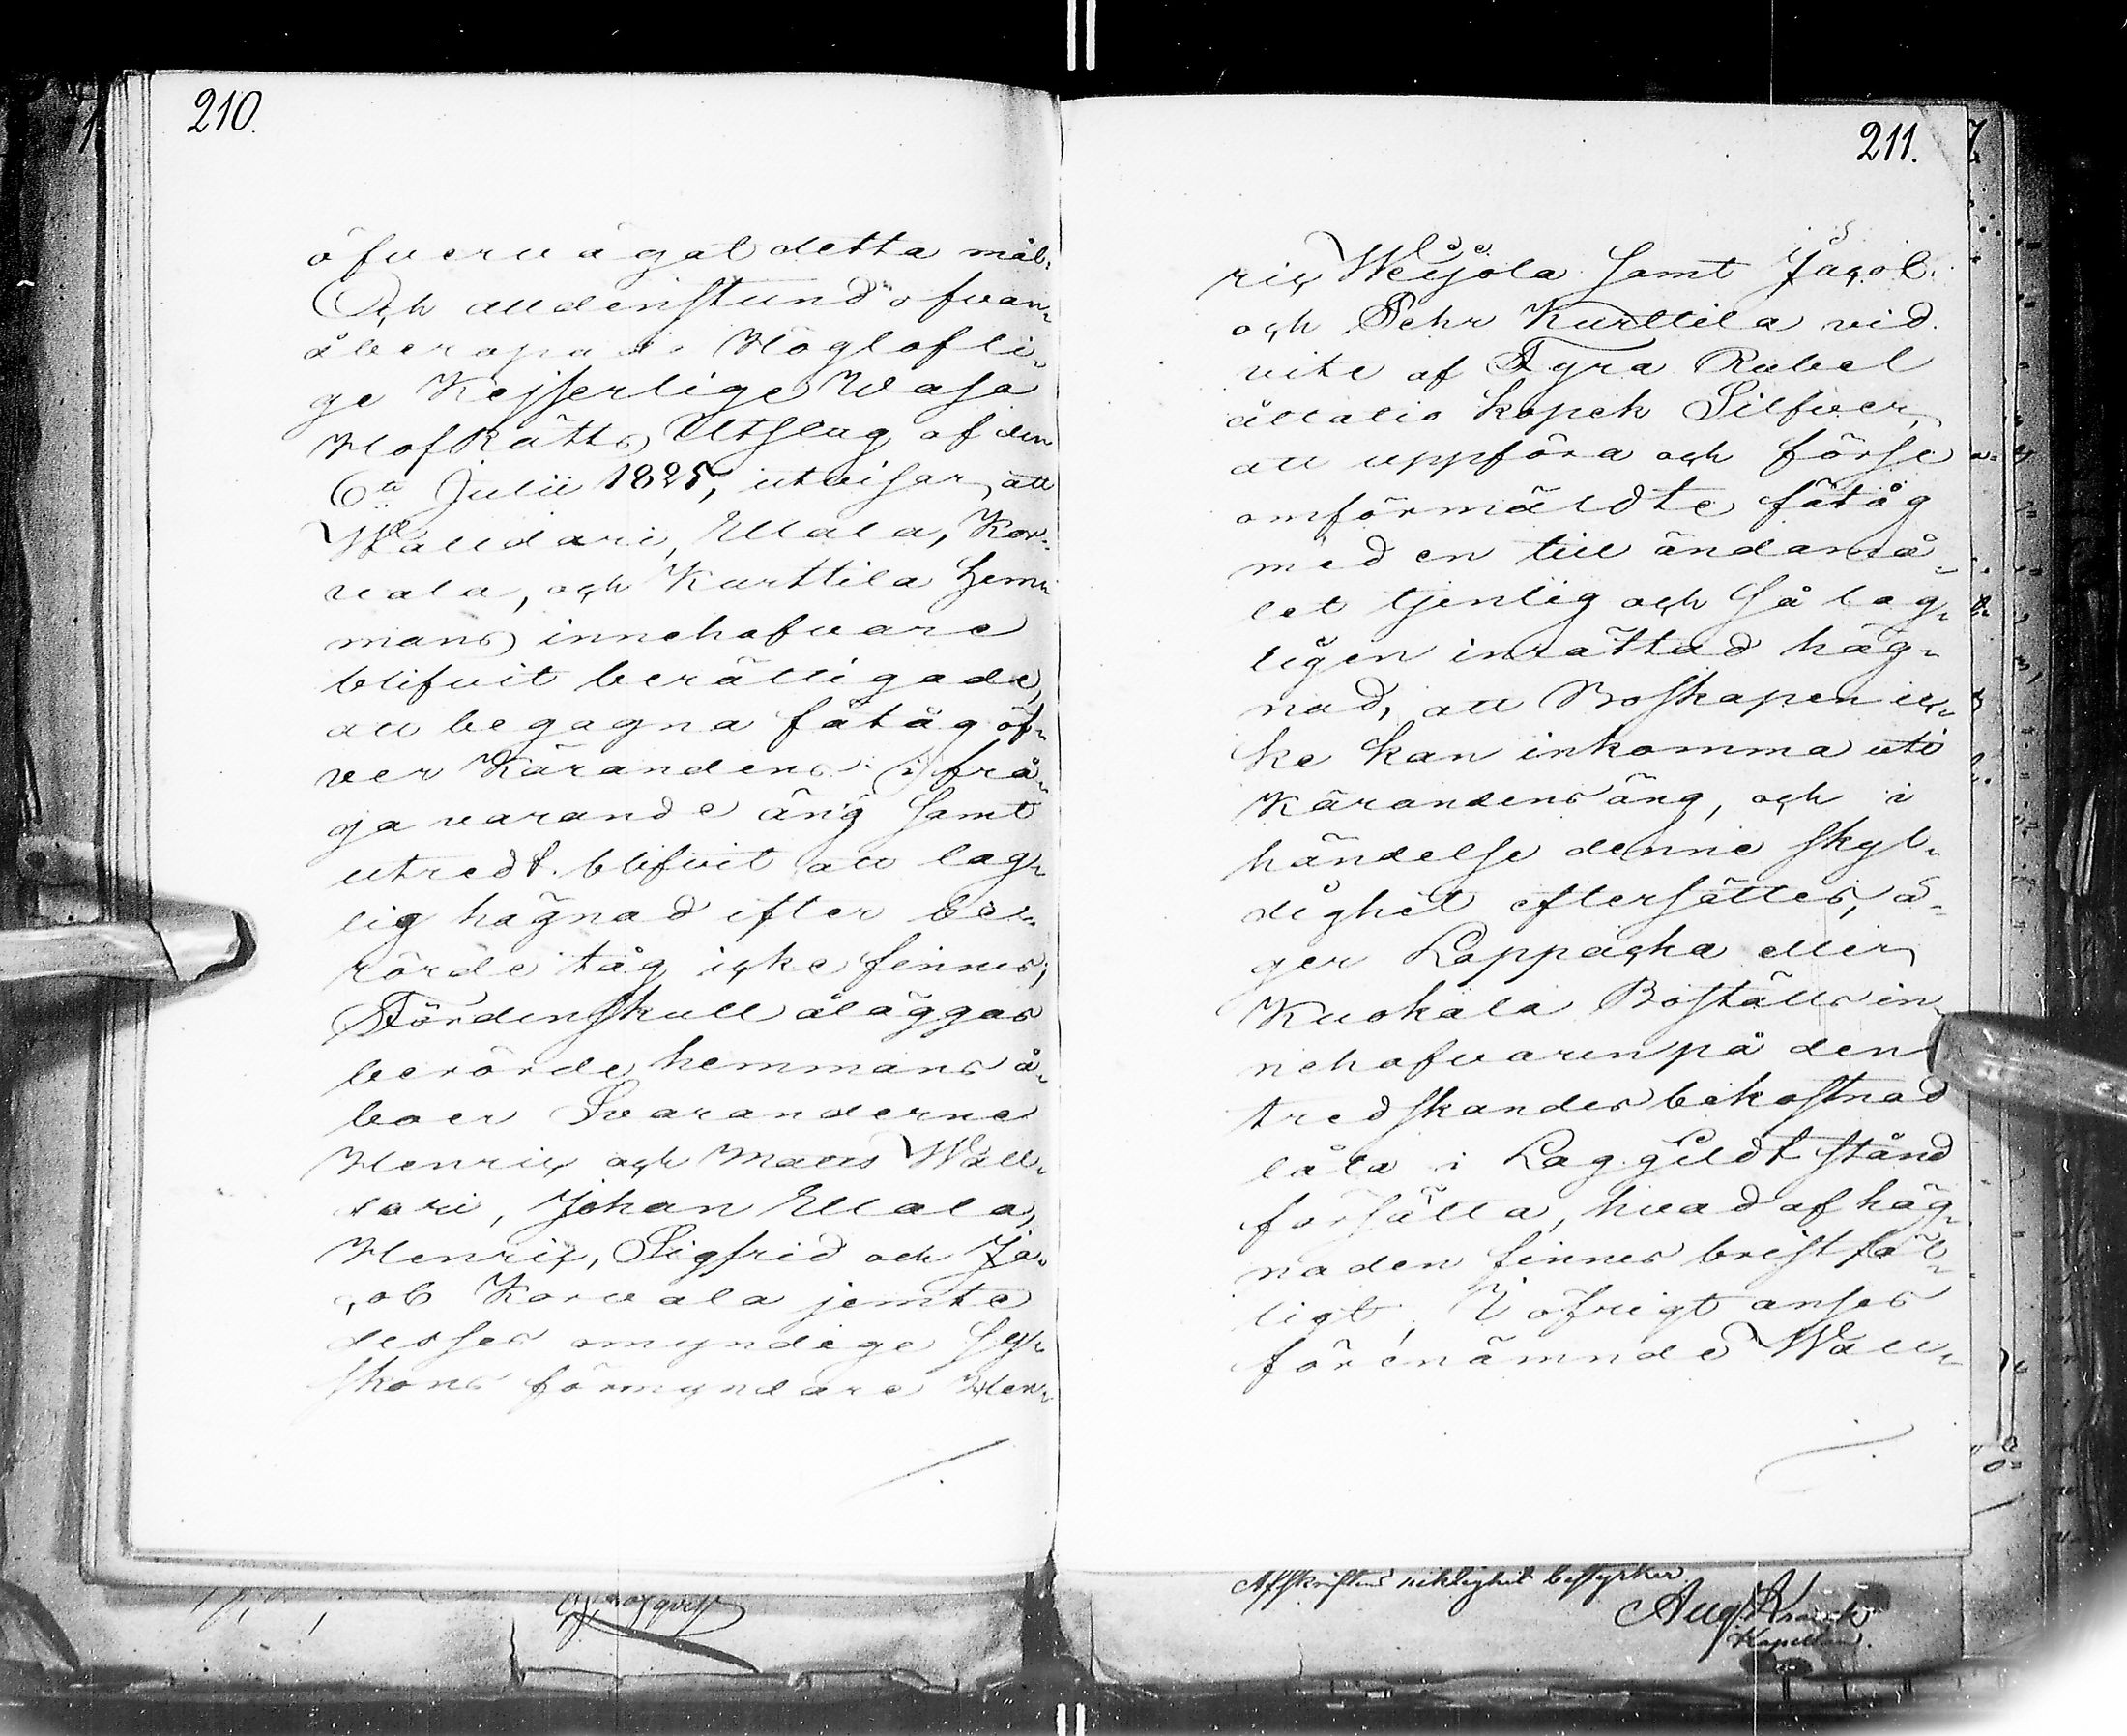 210.
öfvervägat detta mål.
Och alldenstund ofvan¬
åberopade Höglofli¬
ge Kejserlige Wasa
HofRätts Utslag af den
6te Julii 1825, utvisar, att
Walldari, Ellala, Kor¬
vala, och Kurttila hem¬
mans innehafvare
blifvit berättigade,
att begagna fätåg öf¬
ver Kärandens i frå¬
ga varande äng samt
utredt blifvit att lag¬
lig hägnad efter be¬
rörde tåg icke finnes;
Fördenskull åläggas
berörde hemmans å¬
boer Svaranderne
Henric och Matts Wall¬
tari, Johan Ellala,
Henric, Sigfrid och Ja¬
cob Korvala jemte
desses omyndige Sy¬
skons förmyndare Hen¬
211.
ric Weijola samt Jacob
och Pehr Kurttila vid
vite af Fyra Rubel
åttatio kopek Silfver,
att uppföra och förse
omförmäldte fätåg
med en till ändamå¬
let tjenlig och så lag¬
ligen inrättad häg¬
nad, att Boskapen ic¬
ke kan inkomma uti
Kärandens äng, och i
händelse denne skyl¬
dighet eftersättes, ä¬
ger Lappacka eller
Kuokala Boställs in¬
nehafvaren på den
tredskandes bekostnad
låta i Laggildt stånd
försätta, hvad af häg¬
naden finnes bristfäl¬
ligt; I öfrigt anses
förenämnde Wall¬
Afskriftens riktighet bestyrker
Aug. Krank
Kapellan.